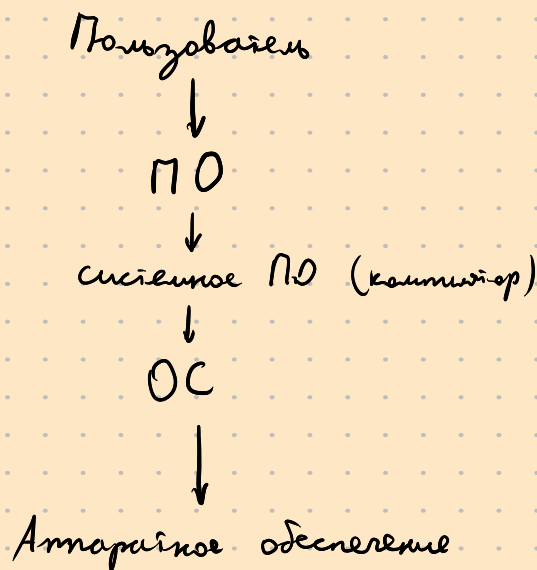 Пользователь
ПО
системное ПО (компилятор)
ОС
Аппаратное обеспечение